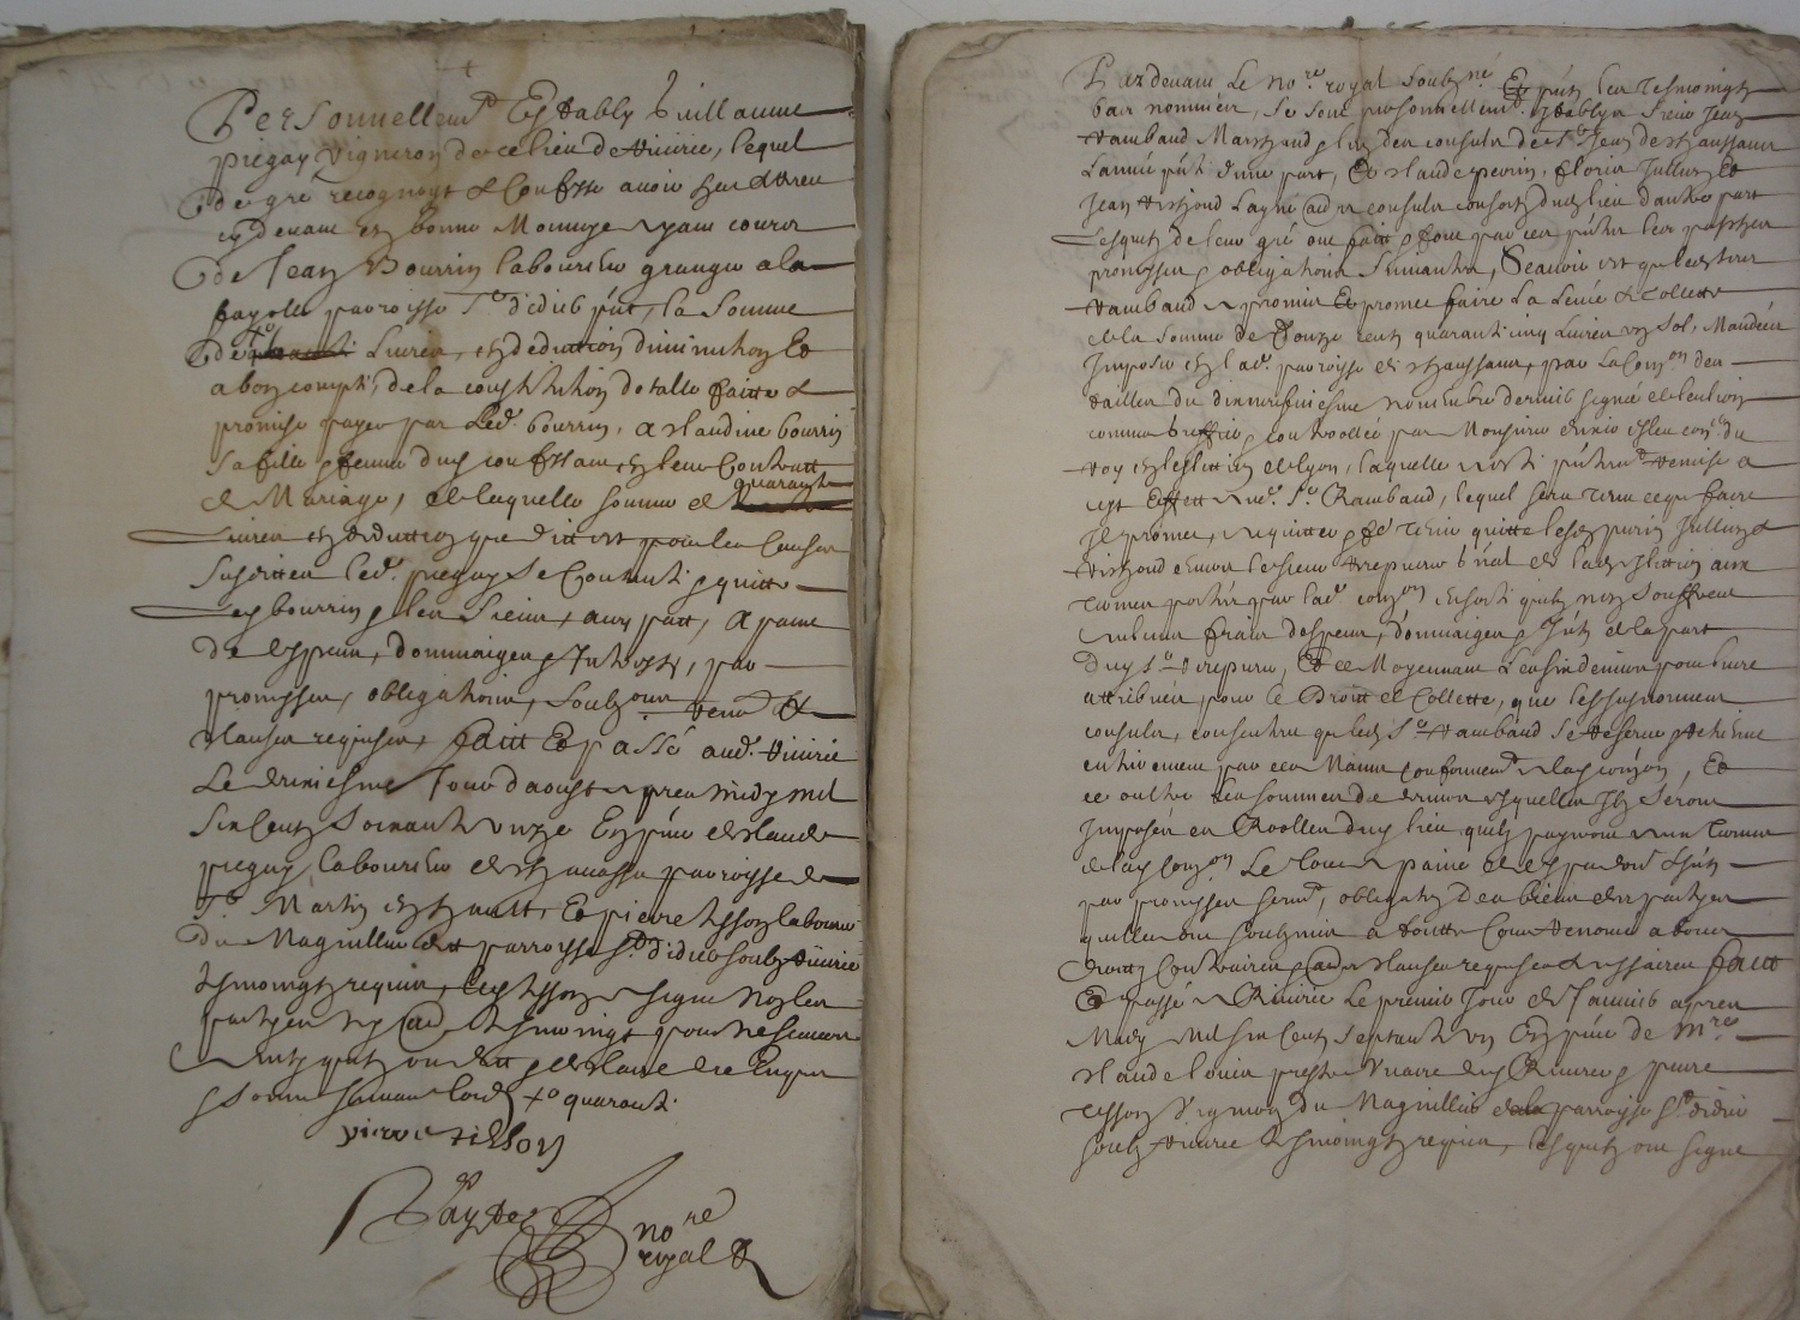 Personnellemt Estably Guillaume
pregay Vigneron de ce lieu de Riuirie, lequel
de gre recognoyt & Confesse auoir heu & Receu
cy deuant en bonne Monnoye ayant cours
de Jean Bourrin laboureur granger a la
fayolle parroisse St didier pnt, la Somme
de Liures, en deduction diminution Et
a bon compte, de la constitution dotalle faitte &
promise payer par Led. bourrin, a Claudine bourrin
Sa fille & femme dud confessant en leur Contratt
de Mariage, de laquelle somme de quarante
Liures en deduction que ditt est pour les Causes
Susdittes led. pregay Se Contente & quitte
Led bourrin & les Siens, auec patt, A paine
de despens, dommaiges & Interestz, par
promesses, obligations, Soubz ons Renon &
Clauses requises, faitt Et passé aud. Riuirie
Le dixiesme Jour daoust apres midy mil
Six Centz Soixante unze En pnce de Claude
pregay laboureur de parroisse de
St Martin en hault, Et pierre tisson laboureur
du Magnillier ditt parroisse St didier soubz Riuirie
tesmoingtz requis, led tisson a signe Non les
parties ny lad tesmoingt pour ne scauoir
 & de Clause de Enquis
& Somme suiuant lord xo quarante
pierre tisson
nore
royal
Pardeuant Le Nore royal Soubzne Et pntz les Tesmoingtz
bas nommées, Se Sont personnellemt Establys Sieur Jean
Rambaud Marchand & lun des consulz de St Jean de Chaussans
Lannée pnte dune part, Et Claude perrin, Florix Jullin Et
Jean Layné aussy consulz consortz dud lieu dautre part
Lesquelz de leur gré ont faitt & font par ces pntes les pactes
promesses & obligations Suiuantes, Scauoir est que led sieur
Rambaud a promis Et promet faire La Leuée & Collette
de la Somme de Douze cent quarante cinq Liures un Sol, Mandées
Imposer en lad. parroisse de Chaussans, par La Conon des
tailles du dixneufuiesme Nouembre dernier signée
comme Greffier & controollée par Monsieur conr du
Roy en leslection de lyon, laquelle a este pntemt Remise a
cest Effett aud. Sr Rambaud, lequel sera tenu ce que faire
Il promet, acquitter & fe tenir quitte lesd perrin Jullin &
 enuers le sieur Receueur gnal de lad Eslection aux
termes portés par lad conon ensorte quilz n'en Souffrent
aulcun frais despens, dommaiges & Intz de la part
dud Sr Receueur, Et ce Moyennant Les six deniers pour liure
attribués pour le Droitt de Collette, que les susnommes
consulz, consentent que led Sr Rambaud Se Reserue & Retienne
entierement par ces Mains conformemt a lad conon, Et
ce oultre Les sommes de deniers esquelles Ilz Seront
Imposés es Roolles dud lieu, quilz payeront aux termes
de lad Conon Le tout a paine de despens domt & Intz
par promesses sermt, obligaon de biens desd parties
quilles ont soubzmis a toutte Cour Renoncé a tous
droitz Contraires & aux Clauses requises & nessaires faitt
Et passé a Riuirie Le premier Jour de Januier apres
Midy Mil six Centz Septante un En pnce de Mre
Claude louis prestre Vicaire dud Riuirie & pierre
tisson Vigneron du Magnillier parroisse St didier
soubz Riuirie tesmoingtz requis, lesquelz ont signe